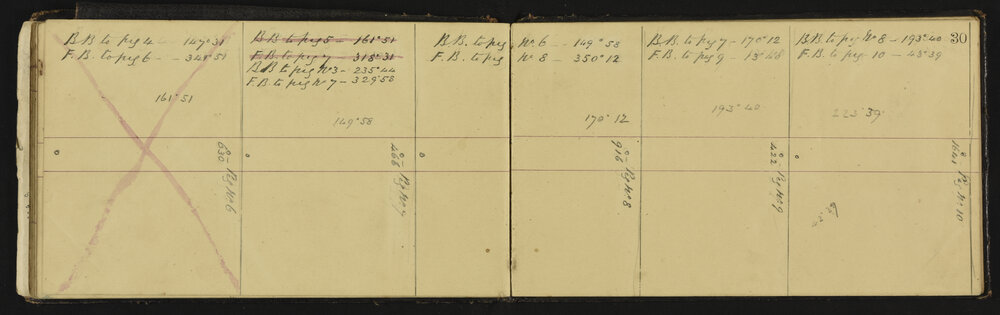 B.B. to peg 4 — 147°31
F.B. to peg 6 — 341°51
161°51
630 Peg No 6
B.B. to peg 5 — 161°51
F.B. to peg 7 — 318°31
B.B. to peg No 3 — 235°44
F.B. to peg No 7 — 329°58
149°58
468 Peg No 7
B.B. to peg No. 6 — 149°58
F.B. to peg No 8 — 350°12
170°12
916 Peg No 8
B.B. to peg 7 — 170°12
F.B. to peg 9 — 13°46
193°40
422 Peg No 9
B.B. to peg No 8 — 193°40
F.B. to peg 10 — 43°39
30
223°39
1641 Peg No 10